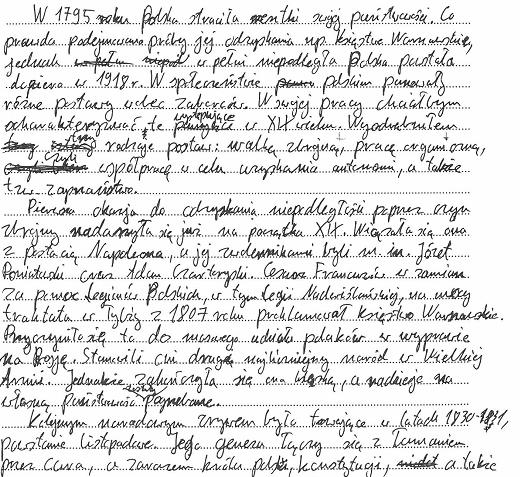 W 1795 roku Polska straciła resztki swojej państwowości. Co
prawda podejmowano próby jej odzyskania np. Księstwo Warszawskie,
jednak w pełni niepodległa Polska powstała
dopiero w 1918 r. W społeczeństwie polskim panowały
różne postawy wobec zaborców. W swojej pracy chciałbym
scharakteryzować te występujące w XIX wieku. Wyodrębniłem
trzy rodzaje postaw: walkę zbrojną, pracę organiczną,
czyli współpracę w celu uzyskania autonomii, a także
tzw. zaprzaństwo.
Pierwsza okazja do odzyskania niepodległości poprzez czyn
zbrojny nadarzyła się już na początku XIX. Wiązała się ona
z postacią Napoleona, a jej zwolennikami byli m.in. Józef
Poniatowski oraz Adam Czartoryski. Cesarz Francuzów w zamian
za pomoc Legionów Polskich, w tym Legii Nadwiślańskiej, na mocy
traktatu w Tylży z 1807 roku proklamował Księstwo Warszawskie.
Przyczyniło się to do masowego udziału polaków w wyprawie
na Rosję. Stanowili oni drugą najliczniejszy naród w Wielkiej
Armii. Jednakże zakończyła się ona klęską, a nadzieje na
własną państwowość pogrzebane.
Kolejnym narodowym zrywem było trwające w latach 1830-1831,
powstanie listopadowe. Jego geneza łączy się z łamaniem
przez cara, a zarazem króla polski, konstytucji, a także